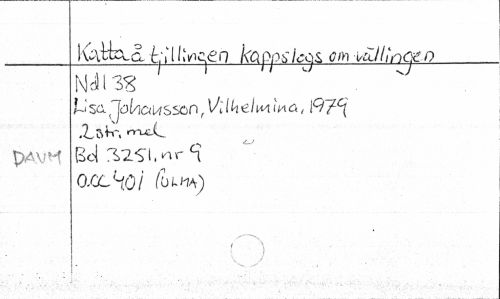 Katta å tjillingen kappslogs om vällingen
Ndl 38
Lisa Johansson, Vilhelmina, 1979
2 str. mel
DAUM Bd 3251, nr 9
O.cc 40i (ULMA)